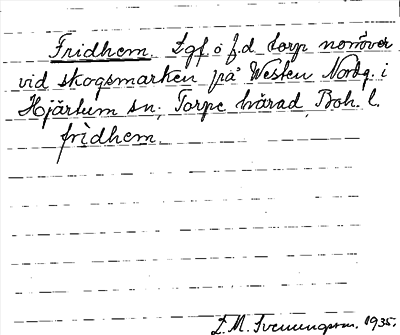 Fridhem. Lgf o f.d torp norröver
vid skogsmarken på Westen Nordg. i
Hjärtum sn, Torpe härad, Boh. l.
fridhem
L. M. Svenungsson. 1935.